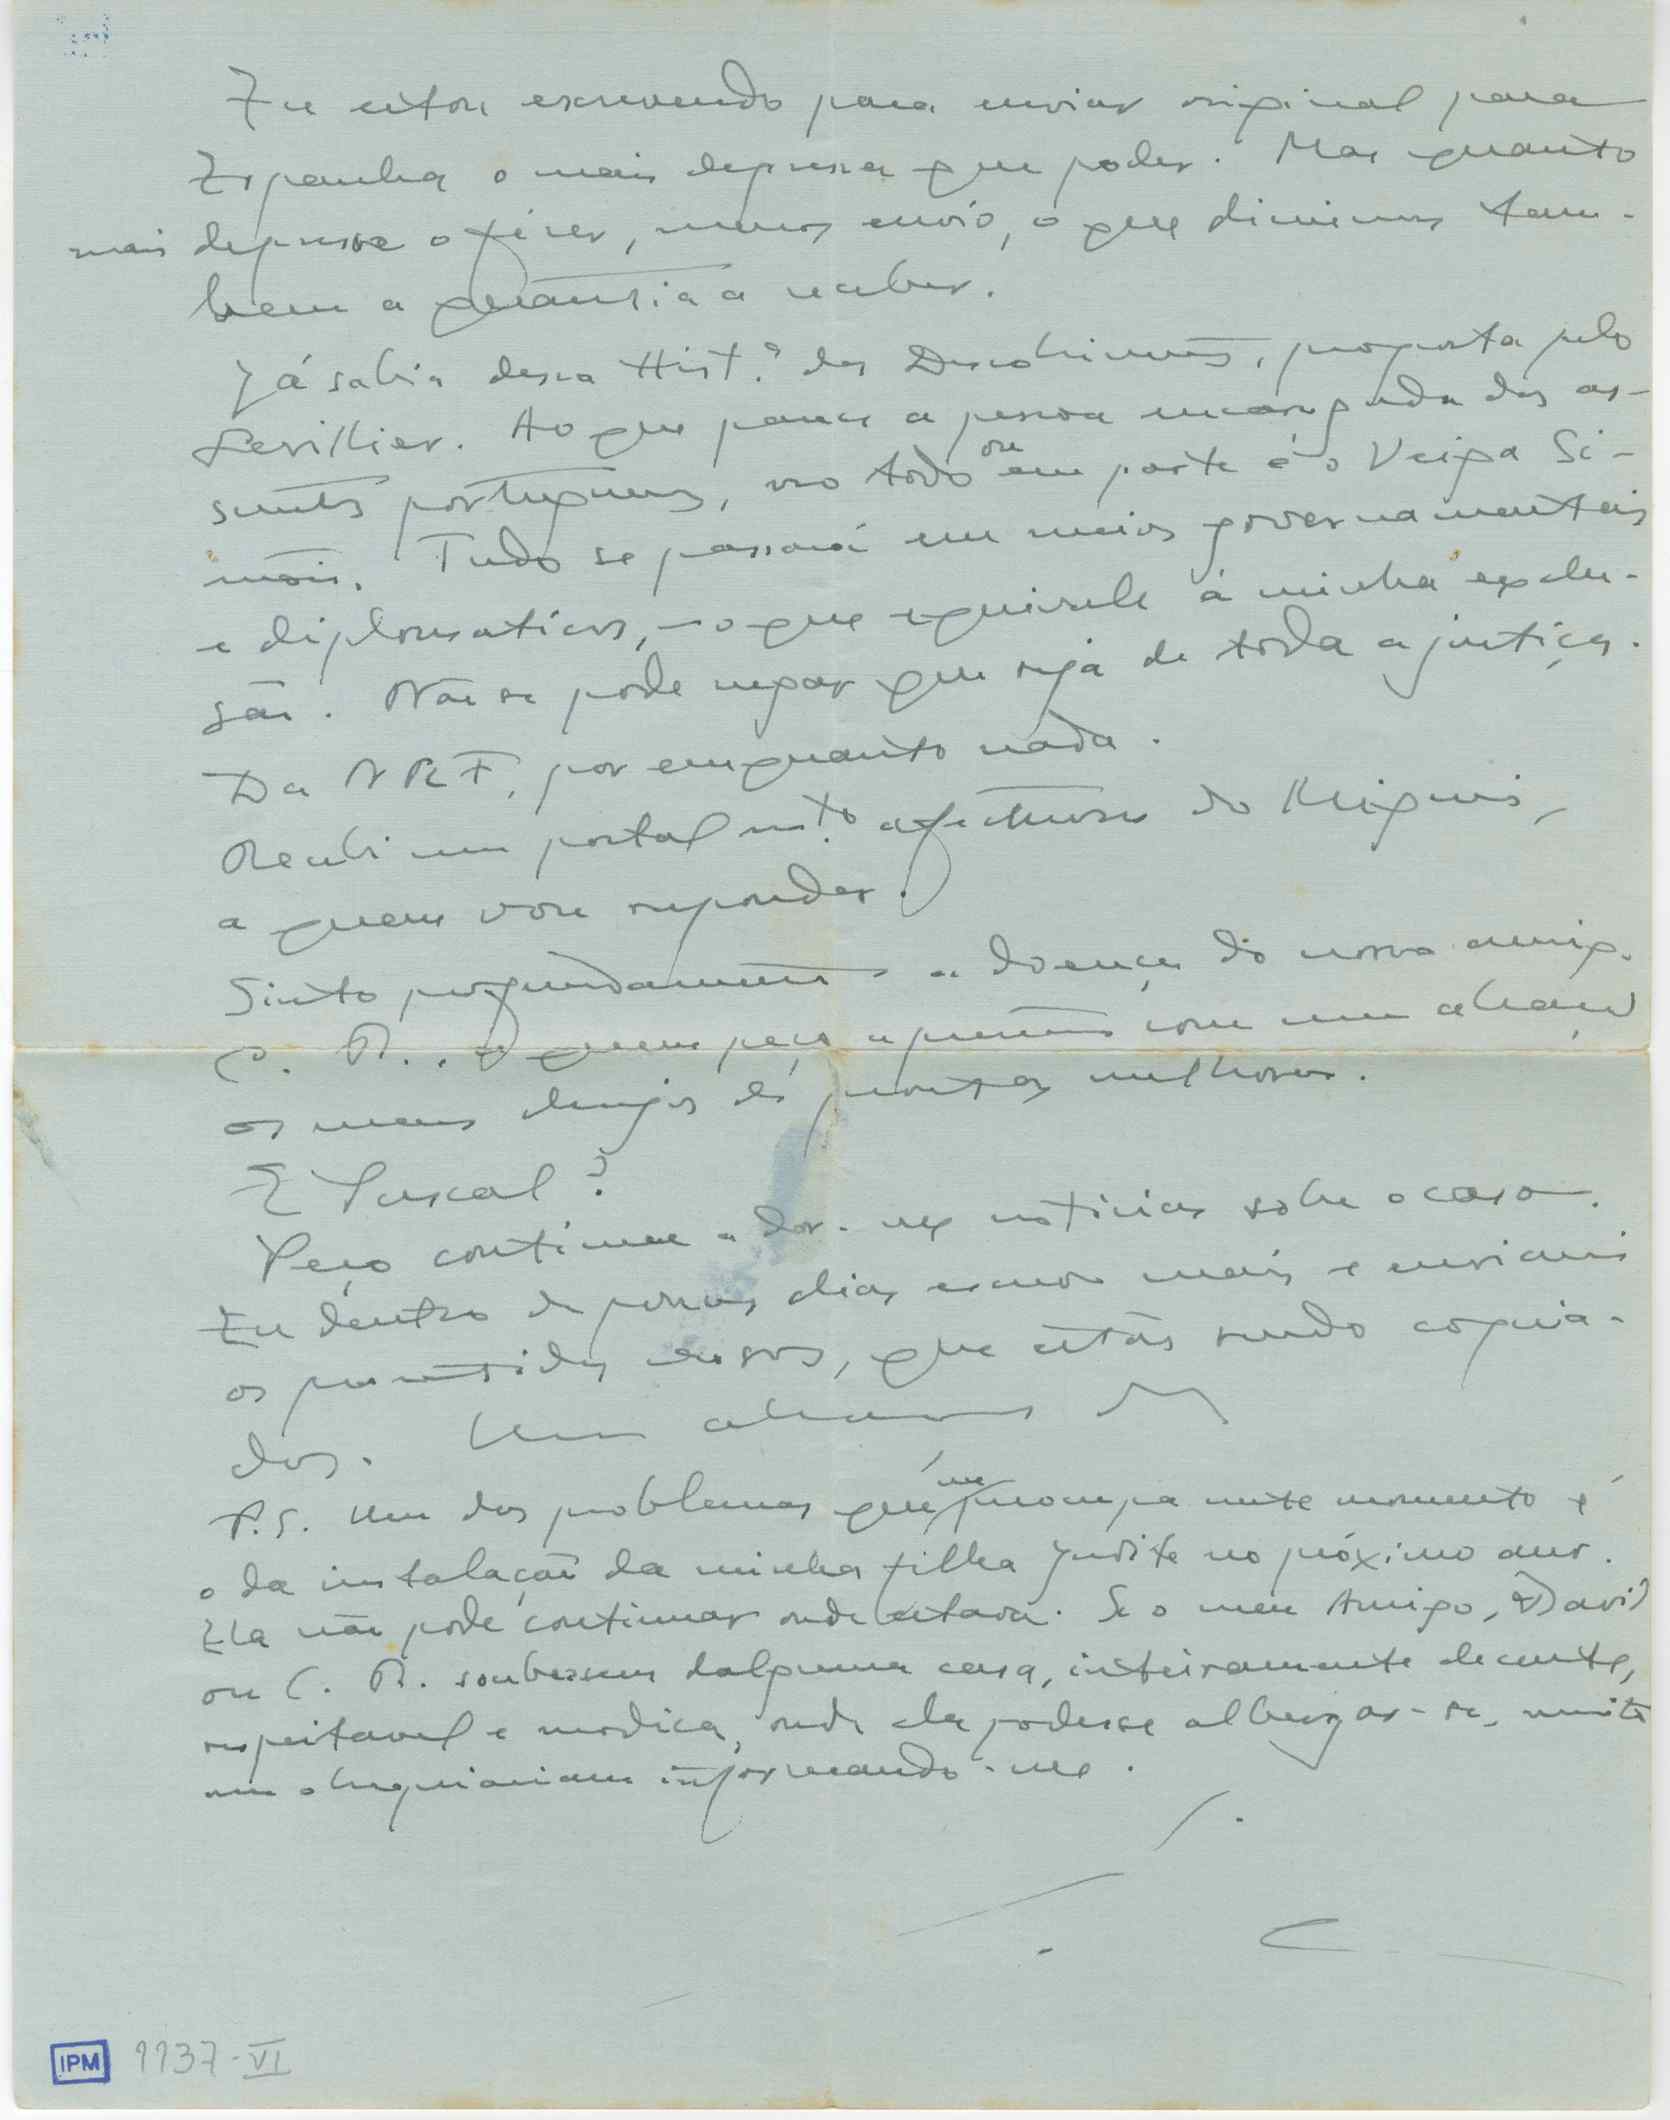 Eu estou escrevendo para enviar original para
Espanha o mais depressa que poder. Mas quanto
mais depressa o fizer, menos envio, o que diminue tam-
bem a quantia a receber.
Já sabia dessa Hist.ª dos Descobrimentos, proposta pelo
Levillier. Ao que parece a pessoa encarregada dos as-
suntos portugueses, no todo ou em parte é o Veiga Si-
mões. Tudo se passará em meios governamentais
e diplomaticos, – o que equivale á minha exclu-
são. Não se pode negar que seja de toda a justiça.
Da NRF, por emquanto nada.
Recebi um postal mt.º afectuoso do Migueis,
a quem vou responder.
Sinto profundamente a doença do nosso amigo
C. R., a quem peço apresente com um abraço
os meus desejos de prontas melhoras.
E Pascal?
Peço continue a dar-me noticias sobre o caso.
Eu dentro de poucos dias escrevo mais e enviarei
os prometidos versos, que estão sendo copia-
dos. Um abraço
P.S. Um dos problemas que me preocupa neste momento é
o da instalação da minha filha Judite no próximo ano.
Ela não pode continuar onde estava. Se o meu Amigo, David
ou C. R. soubessem dalguma casa, inteiramente decente,
respeitavel e modica, onde ela podesse albergar-se, muito
me obsequiariam informando-me.
IPM 1137-VI